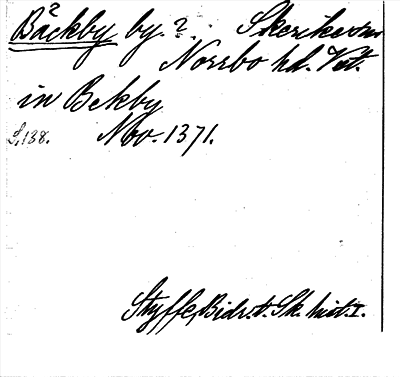 Bäckby by. ?. Skerike sn
Norrbo hd. Vstt.
in Bekby
S. 138. Nov. 1371.
Styffe, Bidr. t. Sk. hist. I.